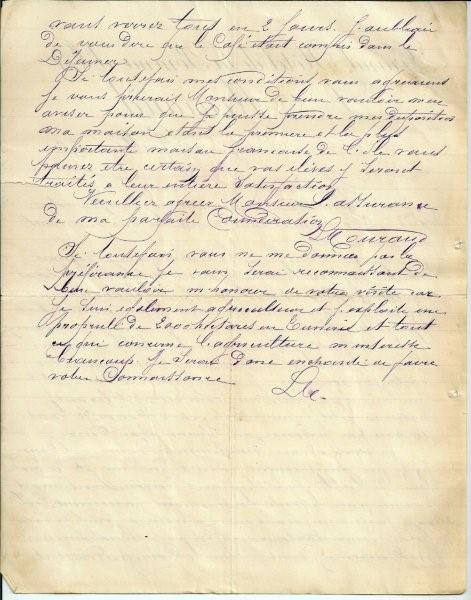 vous verrez tout en 2 jours. J'oubliais
de vous dire que le Café était compris dans le
Déjeuner
Si toutefois mes conditions vous agréerent
je vous prierais Monsieur de bien vouloir m'en
aviser pour que je puisse prendre mes dispositions
ma maison étant la première et la plus
importante maison française de vous
pouvez être certain que vos élèves y seront
traités a leur entière satisfaction
Veuillez agréer Monsieur l'assurance
de ma parfaite Considération
Si toutefois vous ne me donniez pas la
préférence je vous serai reconnaissant de
bien vouloir m'honorer de votre visite car
je suis également agriculteur et j'exploite une
propriété de 2000 hectares en Tunisie et tout
ce que concerne l'agriculture m'intéresse
beaucoup. Je serai donc enchanté de faire
votre Connaissance